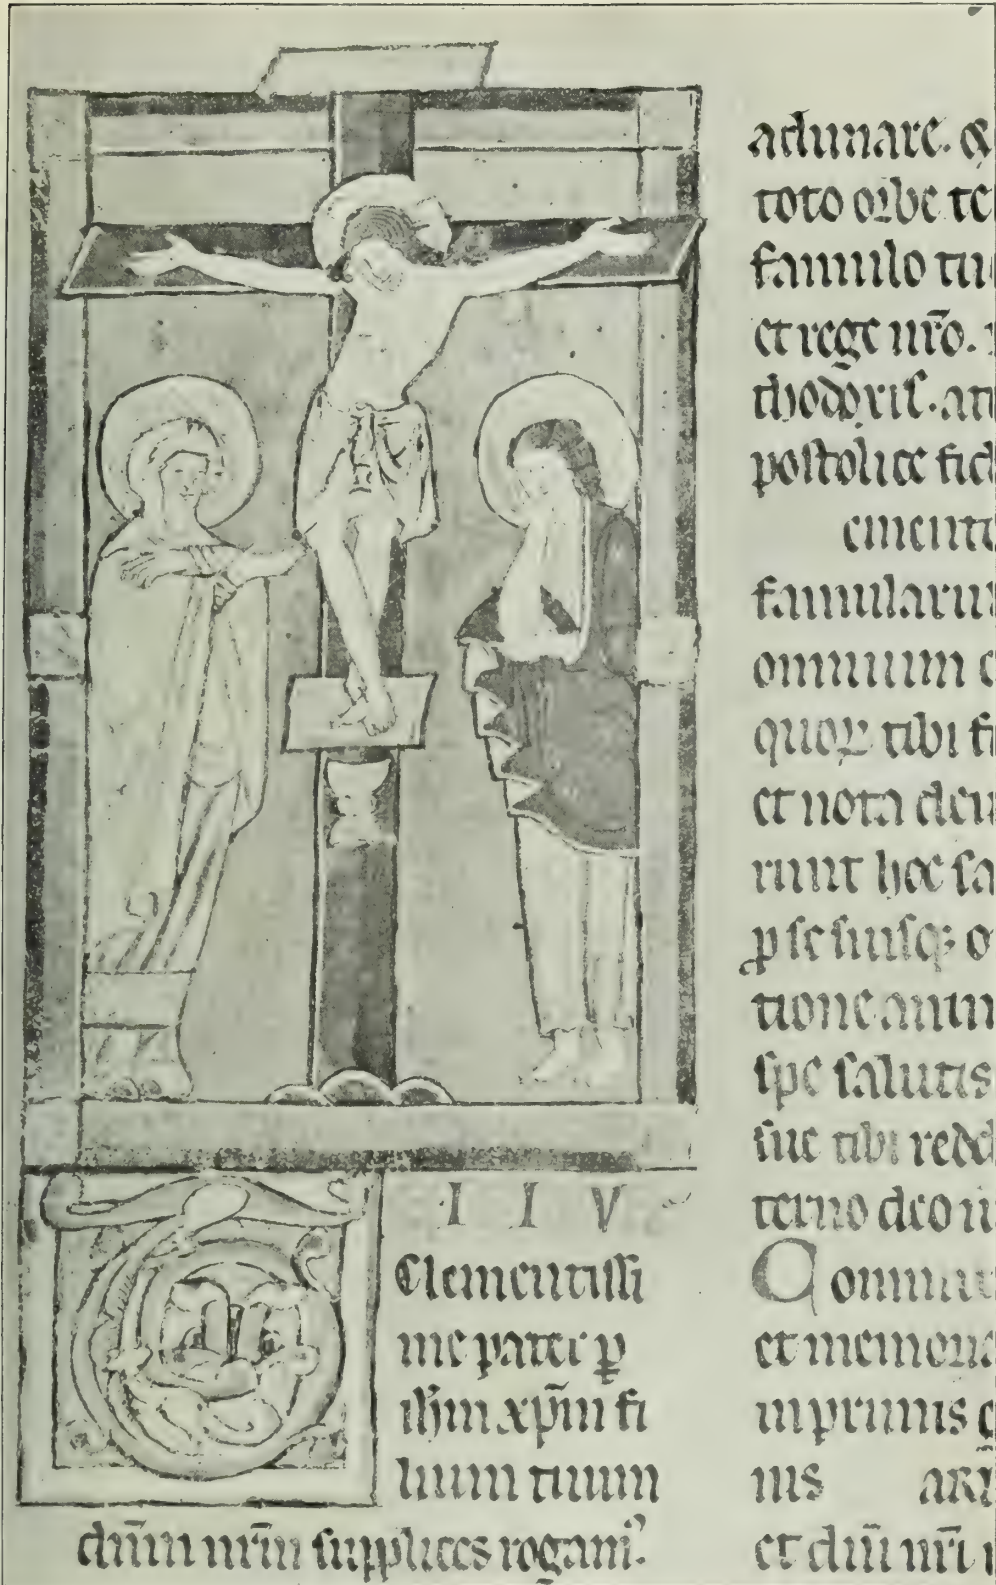 I I V
Clementissi
me pater p̱
ihm̄ xp̄m fi
lium tuum
dn̄m nr̄m supplices rogam᾽.
adunare. &
toto orbe te
famulo tu
et rege nr̄o.
thodoxis. at
postolice fid
emento
famularu
omnium c
quoꝝ tibi fi
et nota deu
runt hoc sa
ꝓ se suisq; o
tione anim
spe salutis
sue tibi redd
terno deo ui
Commu
et memoria
inprimis
nis ari
et dn̄i nr̄i